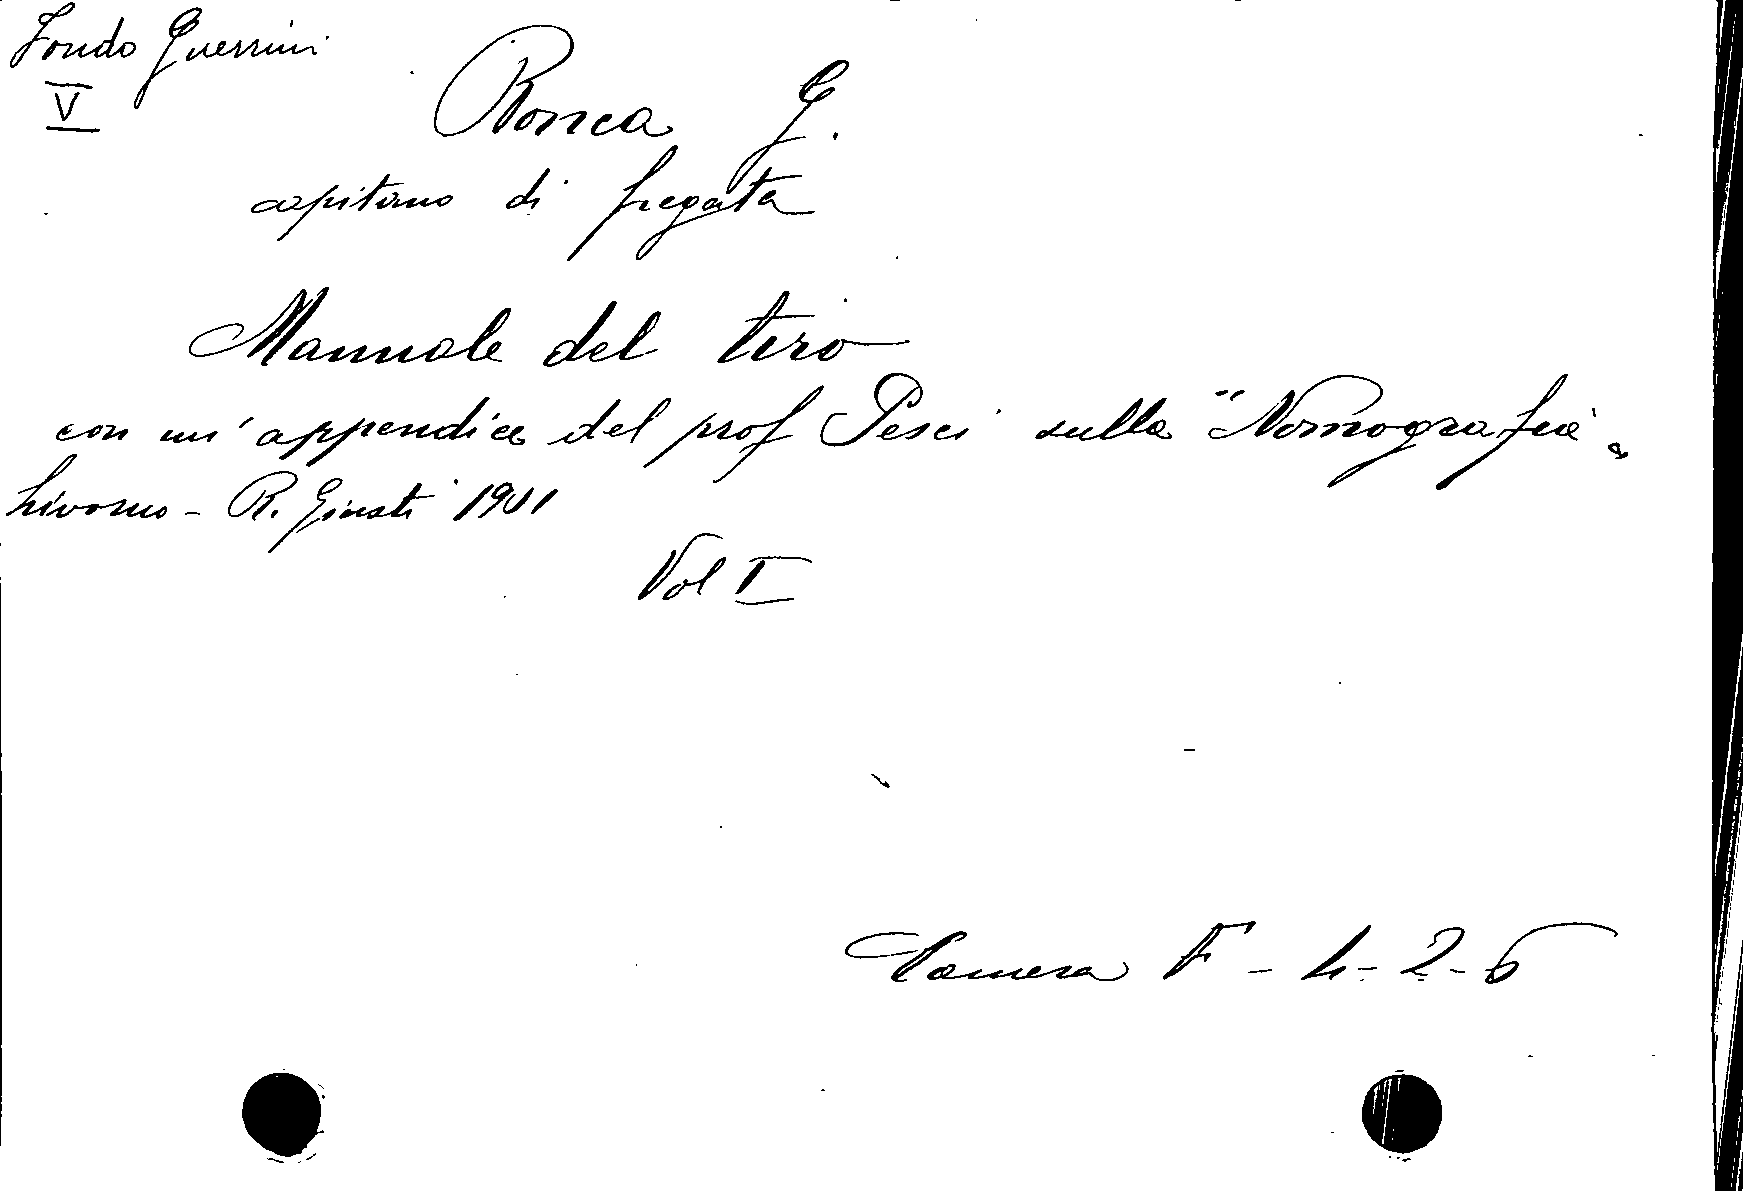 Fondo Guerrini
V
Ronca G.
capitano di fregata
Manuale del tiro
con un'appendice del prof Pesci sulla "Nomografia"
Livorno - R. Giusti 1901
Vol I
Camera F - 4 - 2 - 6